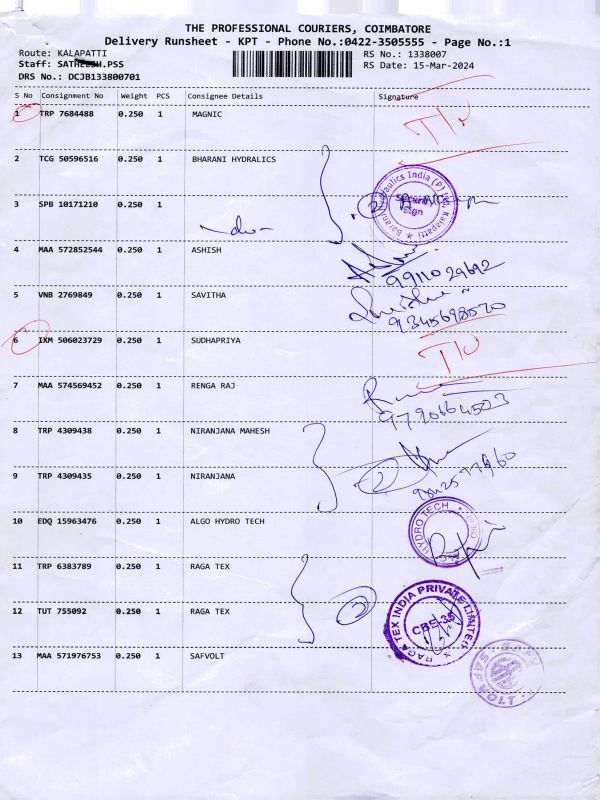 THE PROFESSIONAL COURIERS, COIMBATORE
Delivery Runsheet - KPT - Phone No.:0422-3505555 - Page No.:1
Route: KALAPATTI RS No.: 1338007
Staff: SATHEESH.PSS RS Date: 15-Mar-2024
DRS No.: DCJB133800701
S No Consignment No Weight PCS Consignee Details Signature
1 TRP 7684488 0.250 1 MAGNIC
2 TCG 50596516 0.250 1 BHARANI HYDRALICS
3 SPB 10171210 0.250 1 -do- 2
4 MAA 572852544 0.250 1 ASHISH
9911029692
5 VNB 2769849 0.250 1 SAVITHA
9345698570
6 IXM 506023729 0.250 1 SUDHAPRIYA
7 MAA 574569452 0.250 1 RENGA RAJ
9790664503
8 TRP 4309438 0.250 1 NIRANJANA MAHESH
9 TRP 4309435 0.250 1 NIRANJANA 2
10 EDQ 15963476 0.250 1 ALGO HYDRO TECH
HYDRO TECH
11 TRP 6383789 0.250 1 RAGA TEX
12 TUT 755092 0.250 1 RAGA TEX 2
RAGATEX INDIA PRIVATE LIMITED
CBE-35
13 MAA 571976753 0.250 1 SAFVOLT
SAFVOLT